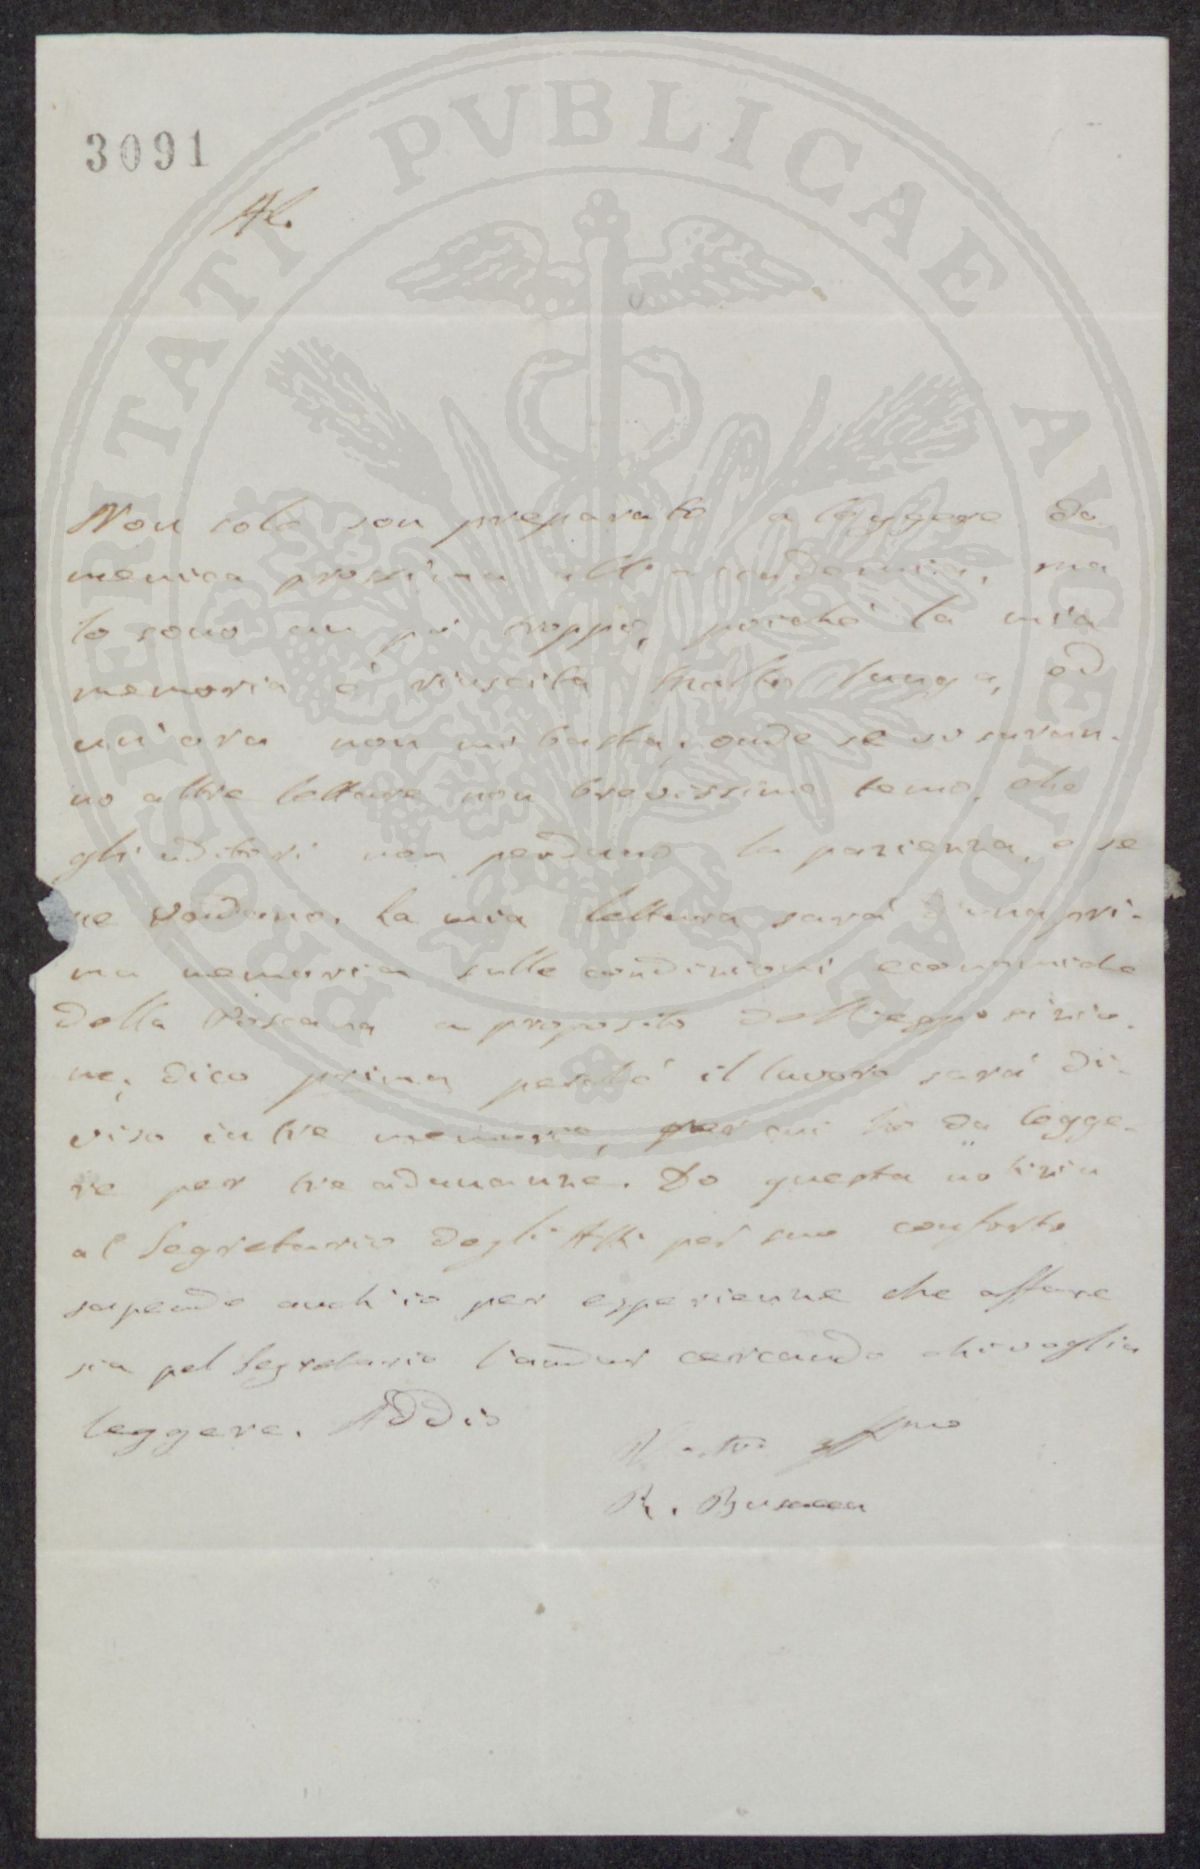 PROSPERITATI PVBLICAE AVGENDAE
3091
Non solo son preparato a leggere do
menica prossima all'accademia, ma
lo sono un pò troppo, poichè la mia
memoria è riuscita molto lunga, ed
un'ora non mi basta; onde se vi saran-
no altre letture non brevissime temo, che
gli uditori non perdano la pazienza, e se
ne vadano. La mia lettura sarà d'una pri-
ma memoria sulle condizioni economiche
della Toscana a proposito dell'esposizio-
ne; dico prima perchè il lavoro sarà di-
viso in tre memorie, per cui ho da legge-
re per tre adunanze. Do questa notizia
al Segretario degli Atti per suo conforto
sapendo anch'io per esperienza che affare
sia pel Segretario l'andar cercando chi voglia
leggere. Addio
affmo
R. Busacca